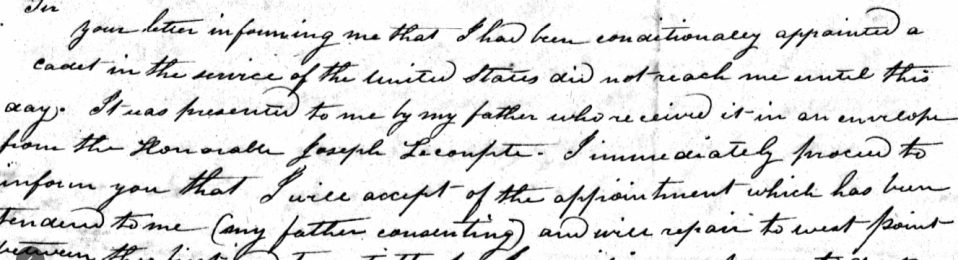 Sir
your letter informing me that I had been conditionally appointed a
cadet in the service of the United States did not reach me until this
day. It was presented to me by my father who received it in an envelope
from the Honorable Joseph Lecompte. I immediately proceed to
inform you that I will accept of the appointment which has been
tendered to me (my father consenting) and will repair to west point
between the